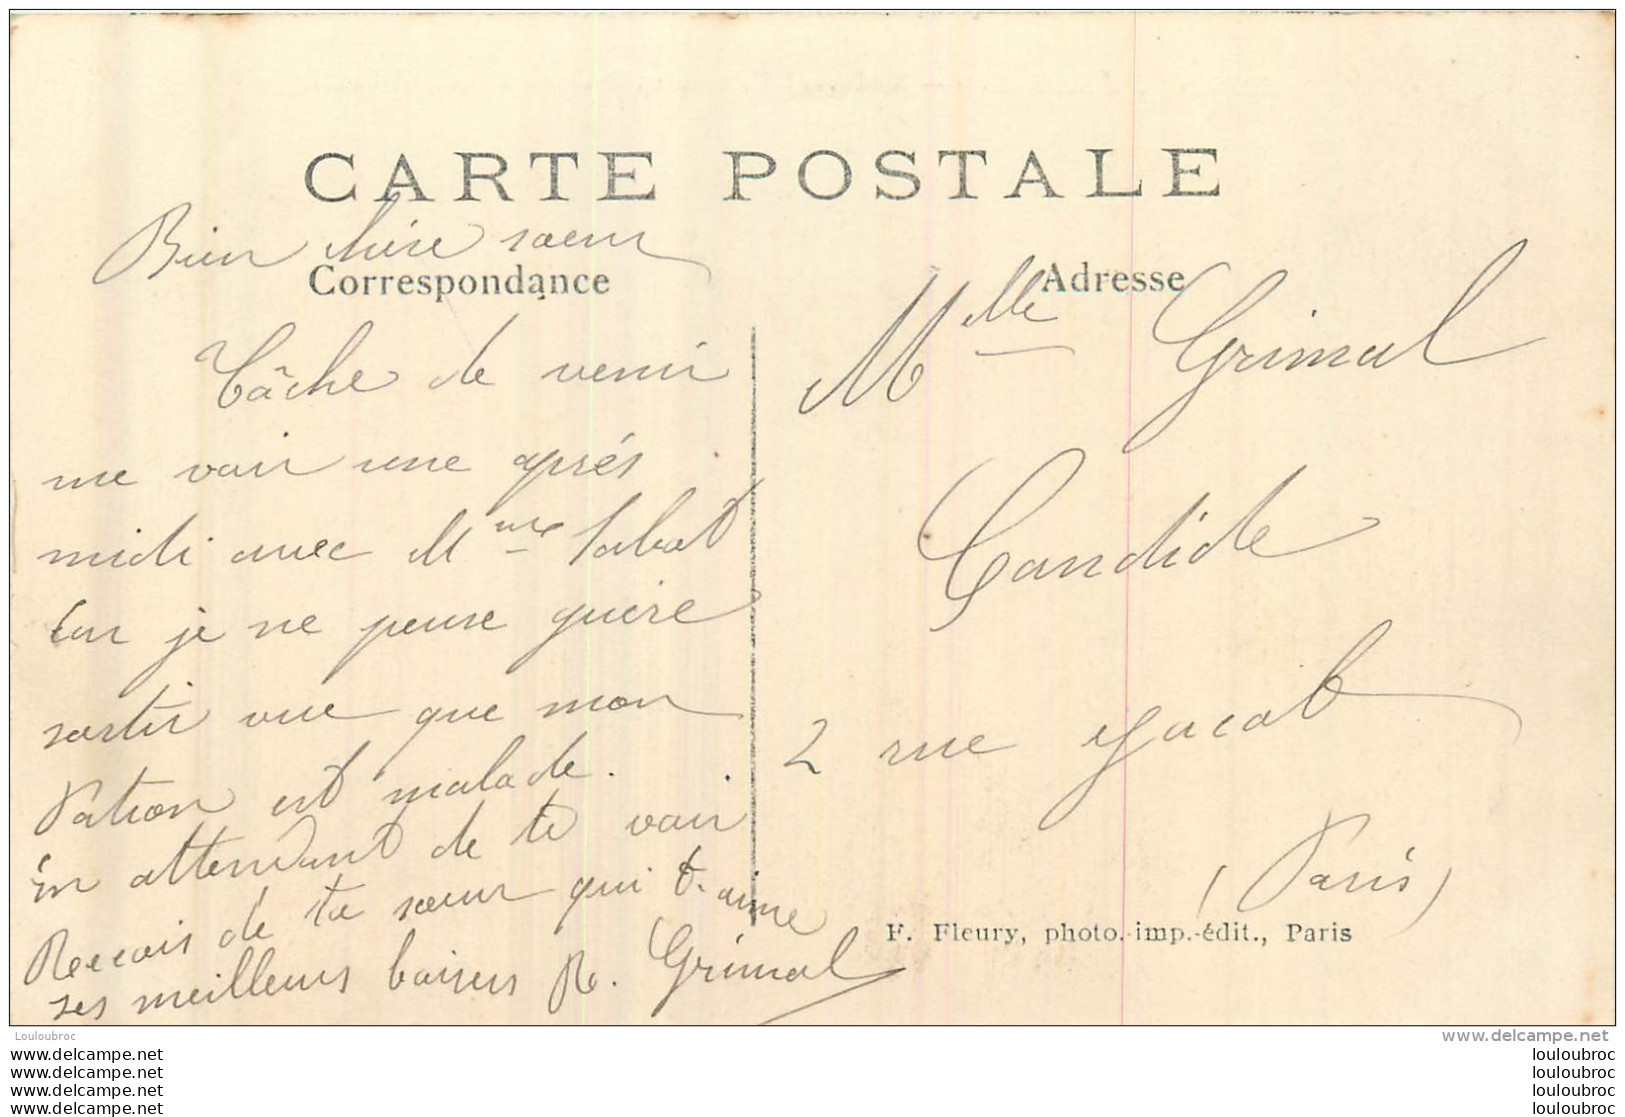 CARTE POSTALE
Bien chère sœur
Correspondance
Tâche de venir
me voir une après
midi avec Mme Sabat
Car je ne peuse guère
sortir vue que mon
Patron est malade.
En attendant de te voir
Recois de ta sœur qui t'aime
ses meilleurs baisers R. Grimal
Adresse
Mlle Grimal
Candide
2 rue Jacob
(Paris)
F. Fleury, photo.-imp.-édit., Paris
Louloubroc
www.delcampe.net
www.delcampe.net
www.delcampe.net
www.delcampe.net
www.delcampe.net
louloubroc
louloubroc
louloubroc
louloubroc